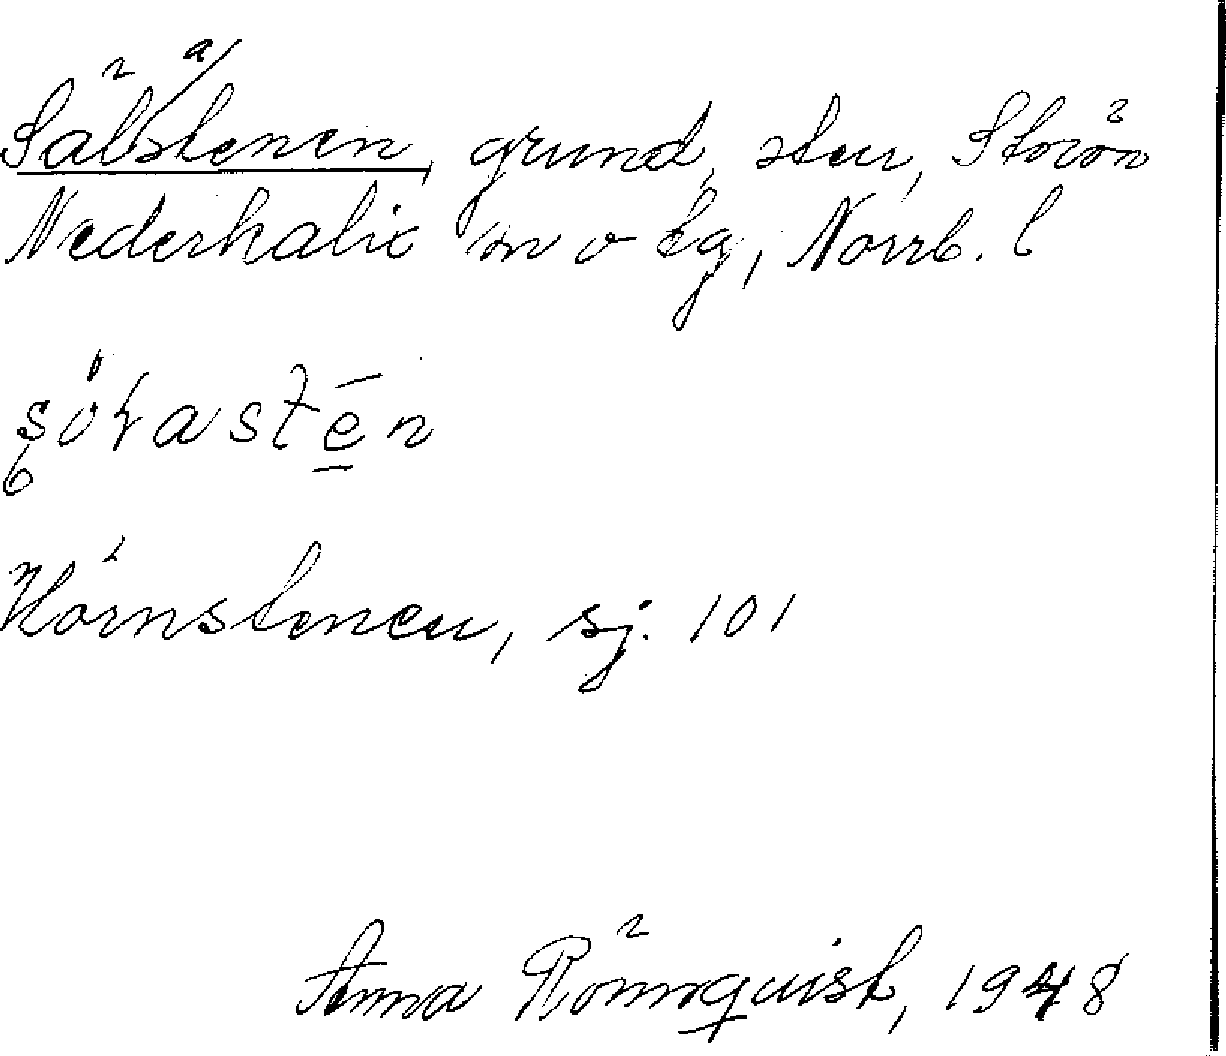 Sälstenen, grund, sten, Storön
Nederkalix sn o tg, Norrb. l
Hörnstenen, sj. 101
Anna Rönnquist, 1948